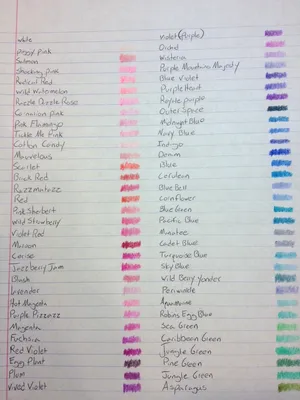 white
Piggy Pink
Salmon
Shocking Pink
Radical Red
Wild Watermelon
Razzle Dazzle Rose
Carnation Pink
Pink Flamingo
Tickle Me Pink
Cotton Candy
Mauvelous
Scarlet
Brick Red
Razzmatazz
Red
Pink Sherbert
Wild Strawberry
Violet Red
Maroon
Cerise
Jazzberry Jam
Blush
Lavender
Hot Magenta
Purple Pizzazz
Magenta
Fuchsia
Red Violet
Egg Plant
Plum
Vivid Violet
Violet (Purple)
Orchid
Wisteria
Purple Mountains Majesty
Blue Violet
Purple Heart
Royale purple
Outer Space
Midnight Blue
Navy Blue
Indigo
Denim
Blue
Cerulean
Blue Bell
Cornflower
Blue Green
Pacific Blue
Manatee
Cadet Blue
Turquoise Blue
Sky Blue
Wild Blue Yonder
Periwinkle
Aquamarine
Robins Egg Blue
Sea Green
Caribbean Green
Jungle Green
Pine Green
Jungle Green
Asparagus